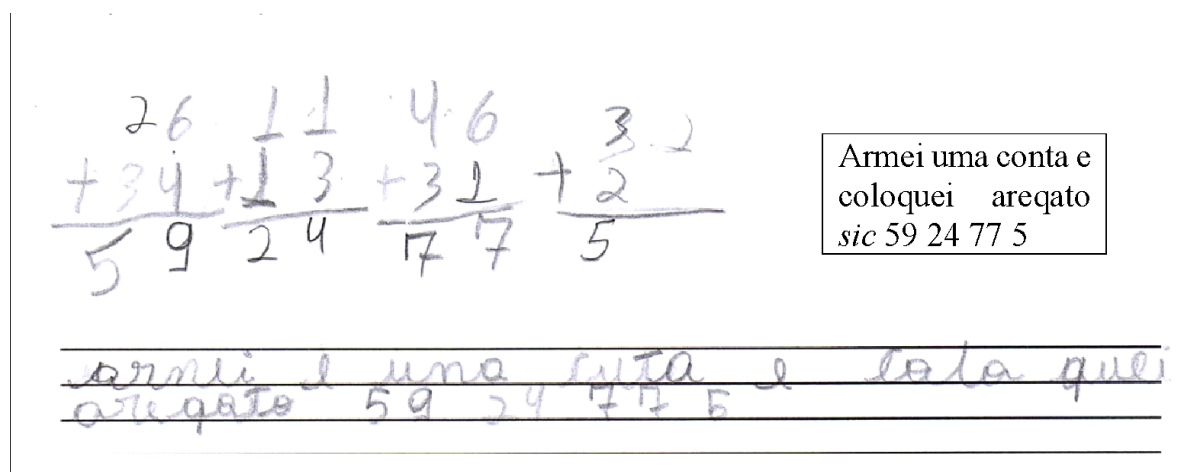 26 11 46 3 2
+34 +13 +31 +2
59 24 77 5
Armei uma conta e
coloquei areqato
sic 59 24 77 5
armei e uma cuta e cola quei
areqato 59 24 77 5